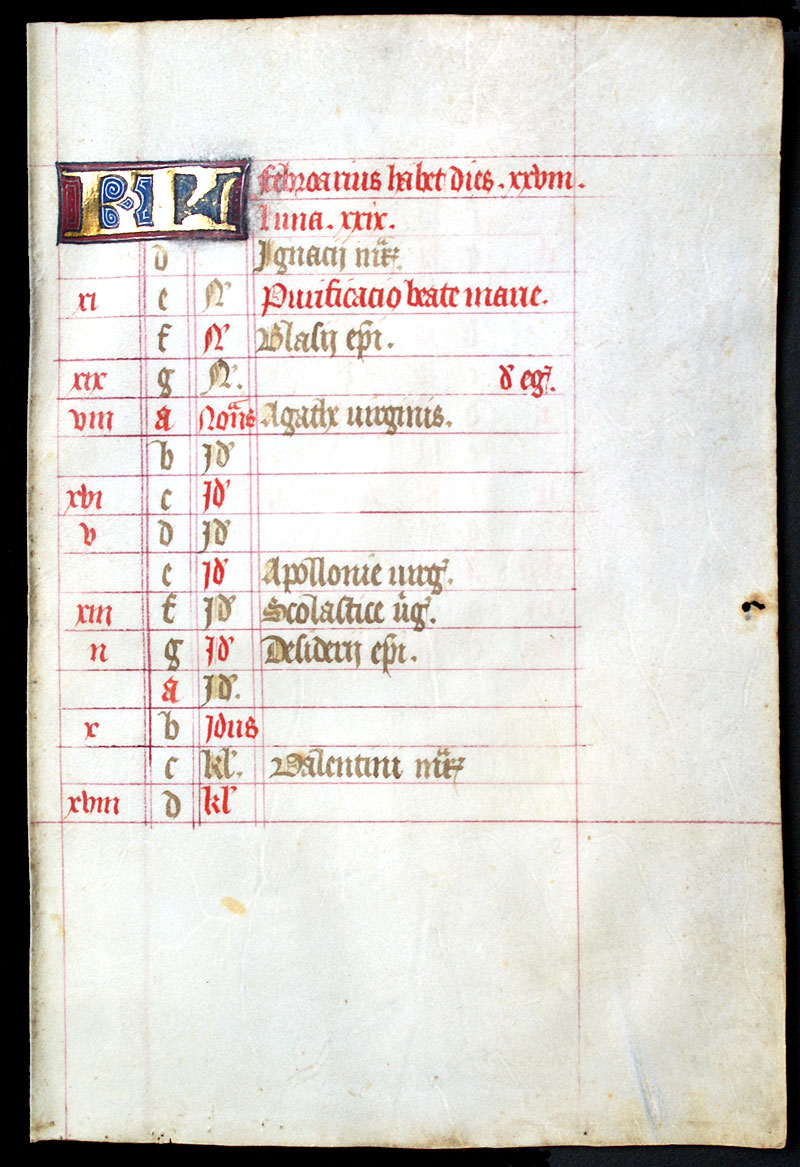 KL Februarius habet dies . xxviii .
luna . xxix .
d Ignacij mr̄
xi e N Purificacio beate marie .
f N Blasij epi .
xix g N . d eg .
viii a Nonas Agathe uirginis .
b Id
xvi c Id
v d Id
e Id Apollonie uirg .
xiii f Id Scolastice ug .
ii g Id Desiderij epi .
a Id .
x b Idus
c kl . Valentini mr̄
xviii d kl